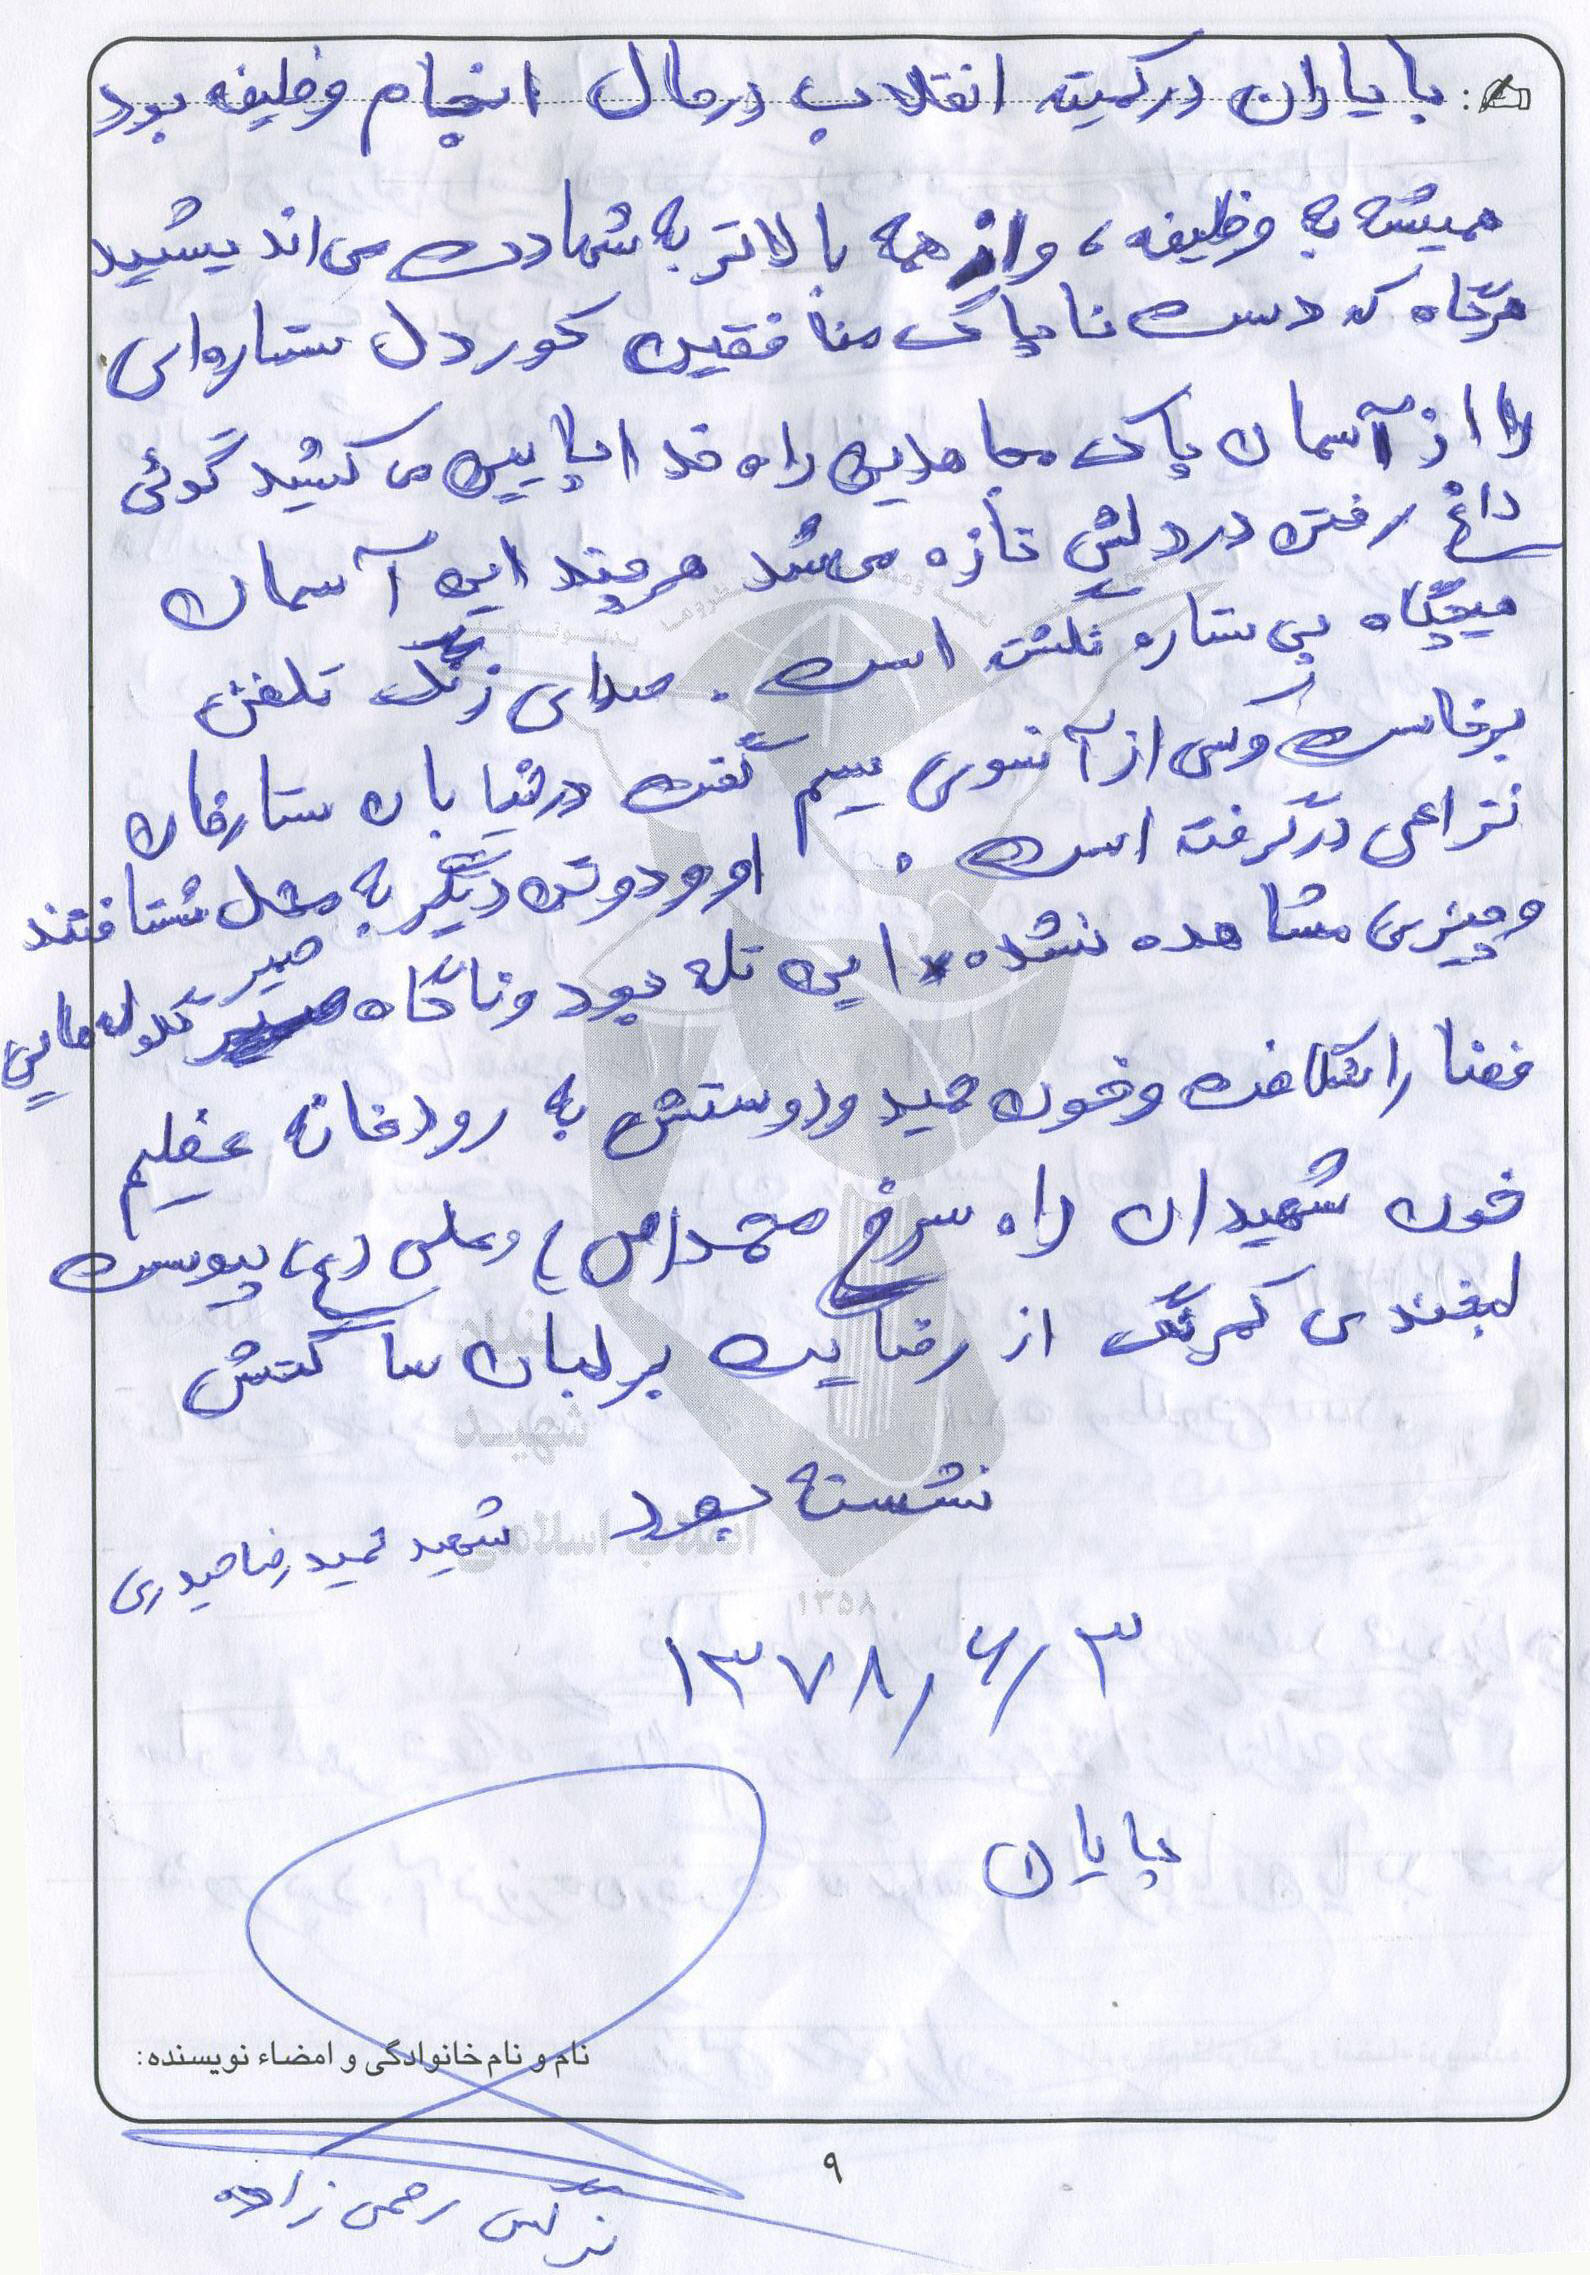 با یاران در کمیته انقلاب در حال انجام وظیفه بود
همیشه به وظیفه، و از همه بالاتر به شهادت می اندیشید
هرگاه که دست ناپاک منافقین کوردل ستاره ای
را از آسمان پاک مجاهدین راه خدا پایین می کشید گوئی
داغ رفتن در دلش تازه می شد هر چند این آسمان
هیچگاه بی ستاره نگشته است. صدای زنگ تلفن
برخاست و کسی از آنسوی سیم گفت در خیابان ستارخان
نزاعی درگرفته است. او و دو تن دیگر به محل شتافتند
و چیزی مشاهده نشده این تله بود و ناگاه صفیر گلوله هایی
فضا را شکافت و خون حمید و دوستش به رودخانه عظیم
خون شهیدان راه سرخ محمد (ص) و علی (ع) پیوست
لبخندی کمرنگ از رضایت بر لبان ساکتش
نشسته بود شهید حمیدرضا حیدری
۱۳۷۸/۶/۳
پایان
بنیاد
شهید
انقلاب اسلامی
۱۳۵۸
نام و نام خانوادگی و امضاء نویسنده:
۹
نرگس رحمن زاده